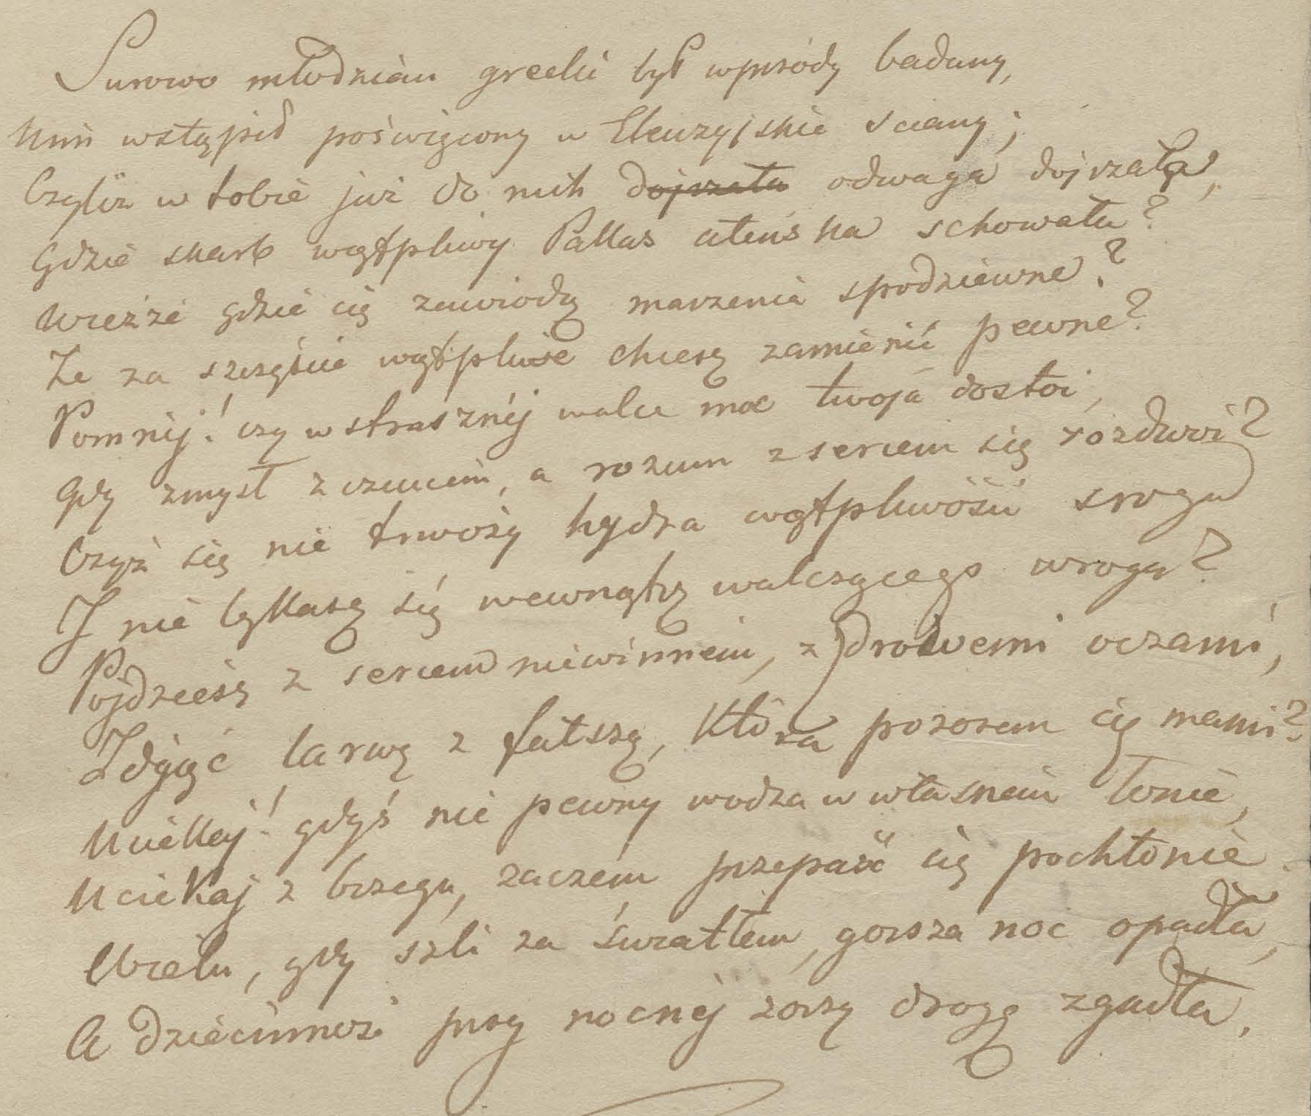 Surowo młodzian grecki był wprzódy badany,
Nim wstąpił poświęcony w Eleuzyjskie sciany;
Czyliż w tobie już do nich dojrzała odwaga dojrzała,
Gdzie skarb wątpliwy Pallas ateńska schowała?
Wieszże gdzie cię zawiodą marzenia spodziewne?
Że za szczęście wątpliwe chcesz zamienić pewne?
Pomnij! czy w strasznéj walce moc twoja dostoi,
Gdy zmysł z czuciem, a rozum z sercem się rozdwoi?
Czyż się nie trwoży hydra wątpliwości sroga
I nie lękasz się wewnątrz walczącego wroga?
Pójdziesz z sercem niewinnem, zdrowemi oczami,
Zdjąć larwę z fałszu, która pozorem cię mami?
Uciekaj! gdyś nie pewny wodza w własnem łonie,
Uciekaj z brzegu, zaczem przepaść cię pochłonie
Wielu, gdy szli za światłem, gorsza noc opadła,
A dziecinność przy nocnéj zorzy drogę zgadła.